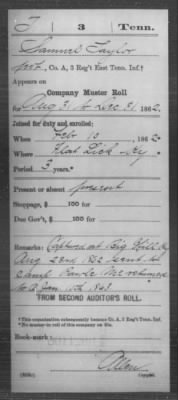 T | 3 | Tenn.
Samuel Taylor
pvt, Co. A, 3 Reg't East Tenn. Inf.†
Appears on
Company Muster Roll
for Aug 31 to Dec 31, 1862.
Joined for duty and enrolled:
When Feb 10, 1862.
Where Flat Lick Ky
Period 3 years.*
Present or absent present
Stoppage, $ 100 for
Due Gov't, $ 100 for
Remarks: Captured at Big Hill Ky
Aug 23rd 1862 sent to
Camp returned
to Co Jany 10th 1863.
FROM SECOND AUDITOR'S ROLL.
†This organization subsequently became Co. A, 3 Reg't Tenn. Inf.
*No muster-in roll of this company on file.
Book mark:
Allen
Copyist.